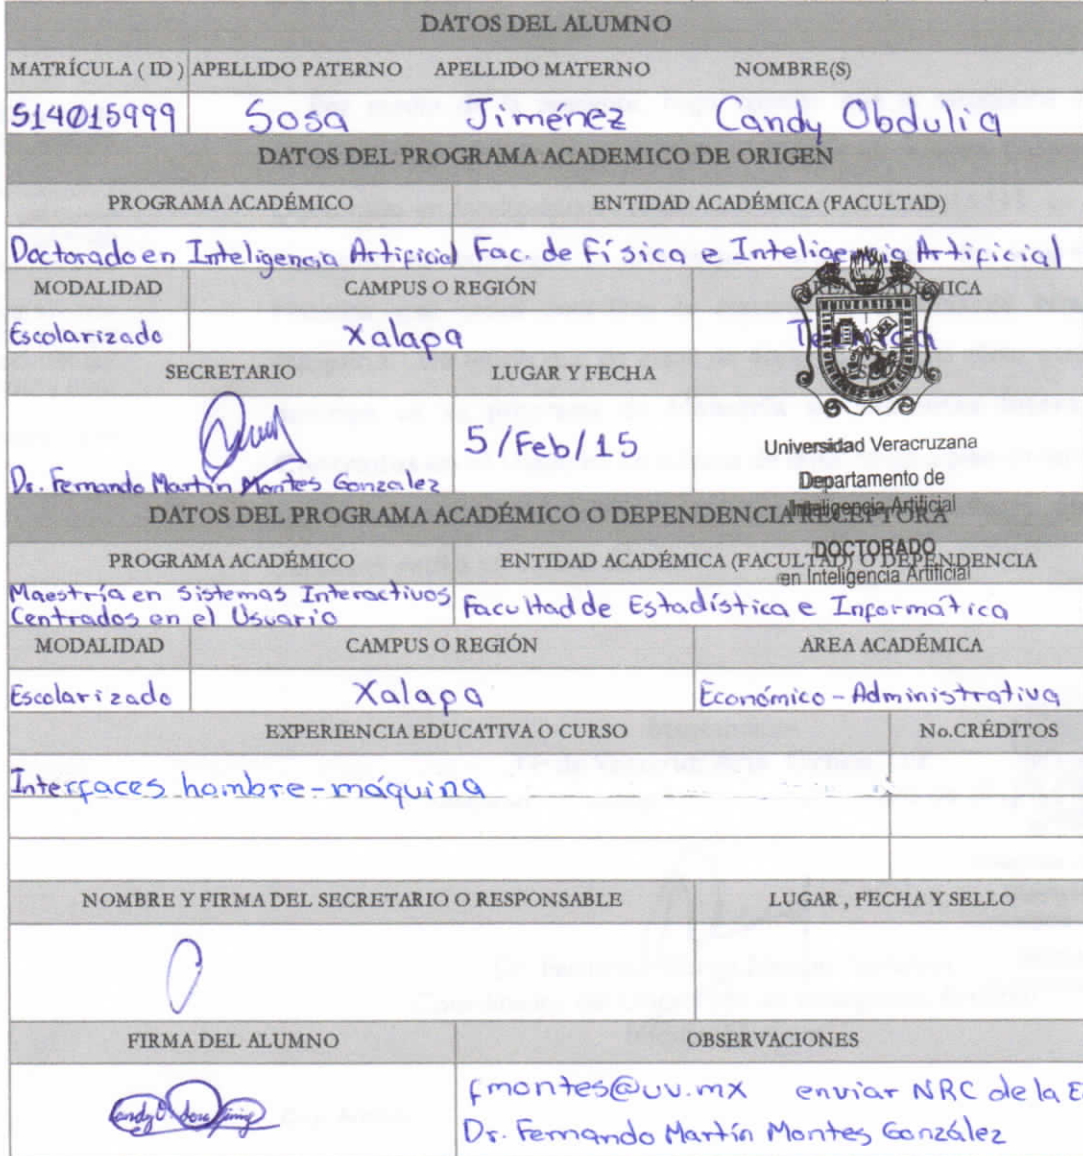 DATOS DEL ALUMNO
MATRÍCULA ( ID ) APELLIDO PATERNO APELLIDO MATERNO NOMBRE(S)
S14015999 Sosa Jiménez Candy Obdulia
DATOS DEL PROGRAMA ACADEMICO DE ORIGEN
PROGRAMA ACADÉMICO ENTIDAD ACADÉMICA (FACULTAD)
Doctorado en Inteligencia Artificial Fac. de Física e Inteligencia Artificial
MODALIDAD CAMPUS O REGIÓN ÁREA ACADÉMICA
Escolarizado Xalapa Técnica
SECRETARIO LUGAR Y FECHA SELLO
5/Feb/15
Universidad Veracruzana
Departamento de
Dr. Fernando Martín Montes Gonzalez
Inteligencia Artificial
DATOS DEL PROGRAMA ACADÉMICO O DEPENDENCIA RECEPTORA
DOCTORADO
PROGRAMA ACADÉMICO ENTIDAD ACADÉMICA (FACULTAD) O DEPENDENCIA
en Inteligencia Artificial
Maestría en Sistemas Interactivos
Centrados en el Usuario Facultad de Estadística e Informática
MODALIDAD CAMPUS O REGIÓN AREA ACADÉMICA
Escolarizado Xalapa Económico-Administrativa
EXPERIENCIA EDUCATIVA O CURSO No.CRÉDITOS
Interfaces hombre-máquina
NOMBRE Y FIRMA DEL SECRETARIO O RESPONSABLE LUGAR , FECHA Y SELLO
FIRMA DEL ALUMNO OBSERVACIONES
fmontes@uv.mx enviar NRC de la E
Dr. Fernando Martín Montes González